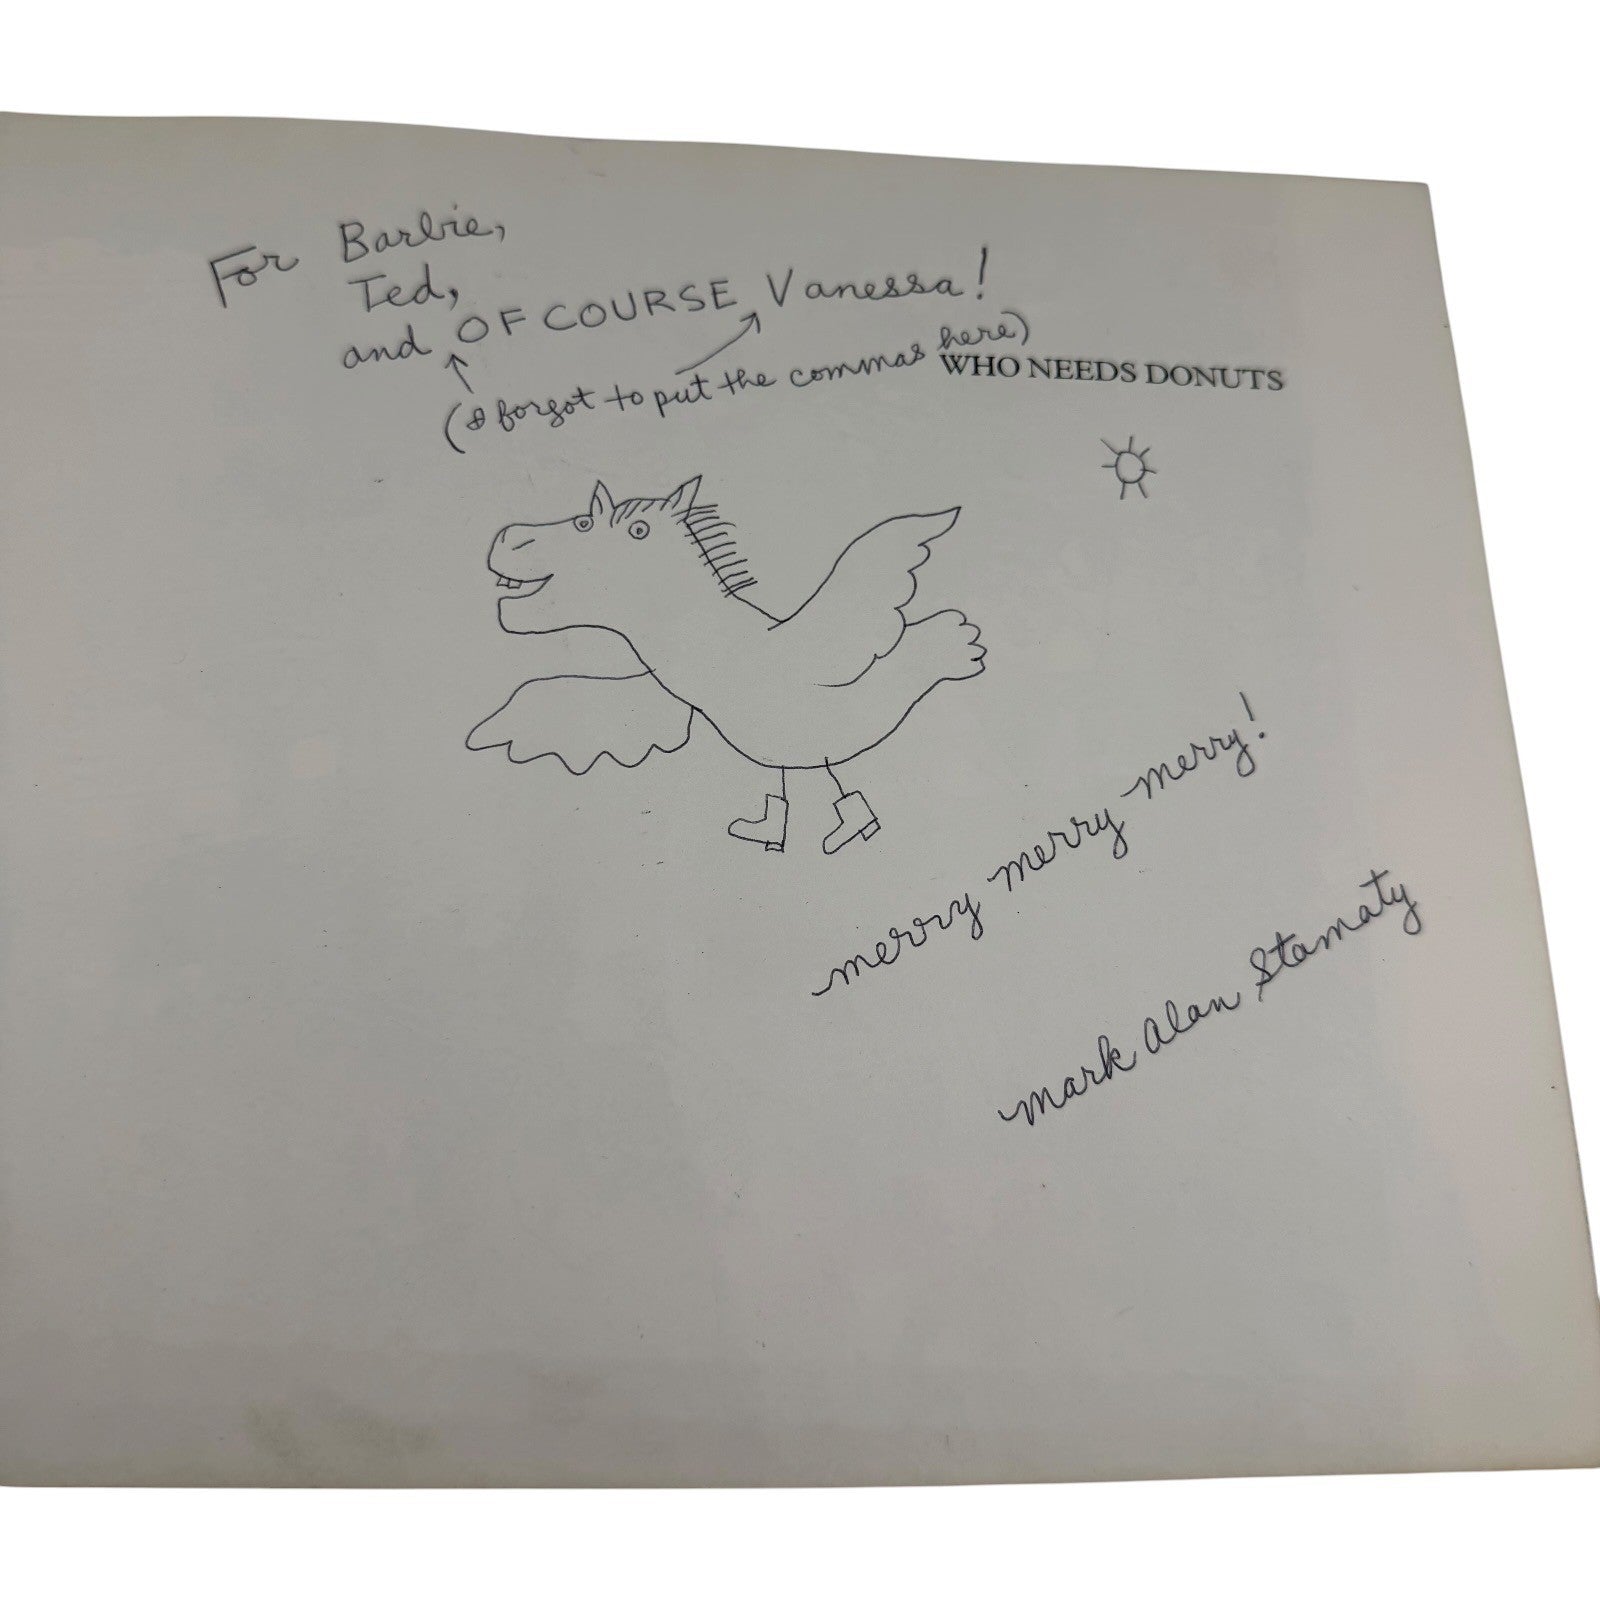 For Barbie,
Ted,
and OF COURSE, Vanessa!
(I forgot to put the commas here)
WHO NEEDS DONUTS
merry merry merry!
Mark Alan Stamaty